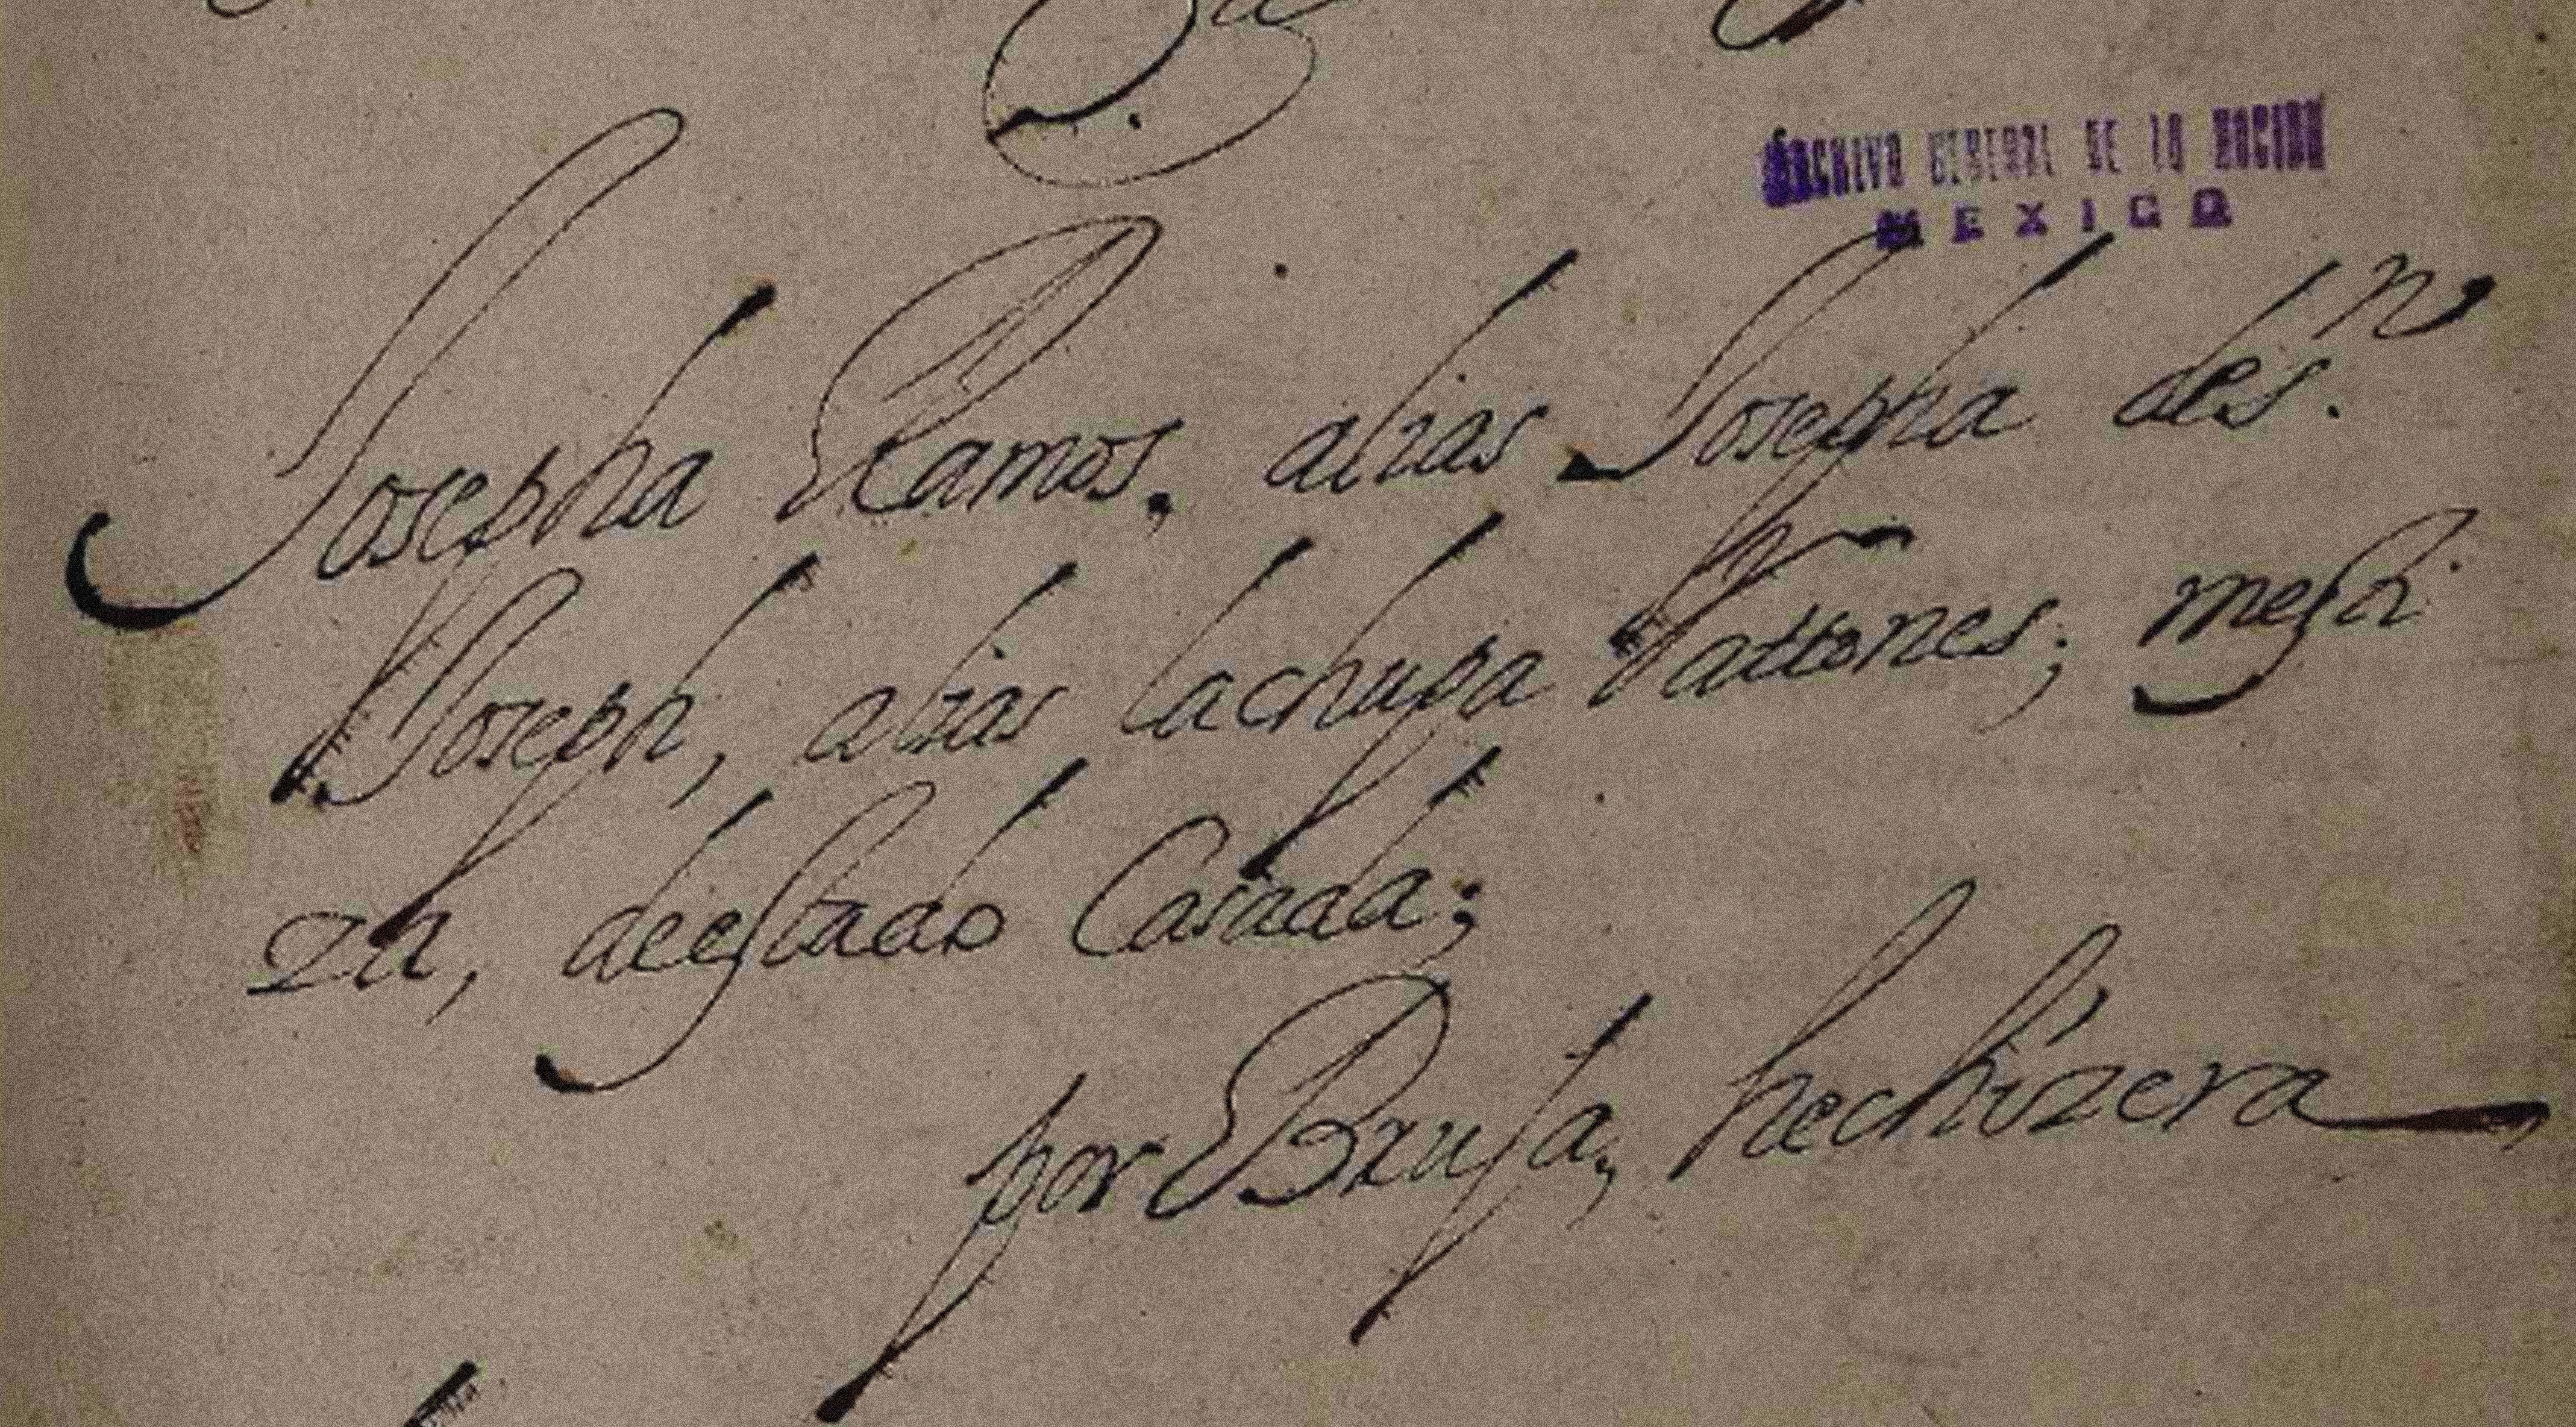 ARCHIVO GENERAL DE LA NACION
MEXICO
Josepha Ramos, alias Josepha de S.n
Joseph, alias la chupa Rattones; mesti
za, de estado Casada;
por Bruja, hechizera